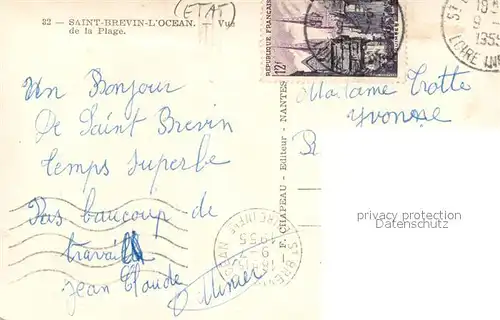 (ETAT)
32 — SAINT-BREVIN-L'OCEAN. — Vue
de la Plage.
Un Bonjour
De Saint Brevin
temps superbe
Pas baucoup de
travail
Jean Claude
O Minier
F. CHAPEAU - Editeur - NANTES
REPUBLIQUE FRANÇAISE
12F
Madame Trotte
Yvonne
R
privacy protection
Datenschutz
1955
LOIRE INF
1955